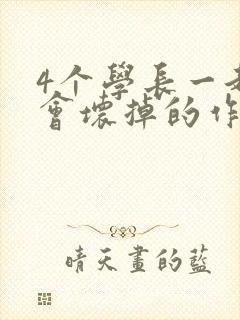 4个學長一
會壞掉的作
晴天畫的藍